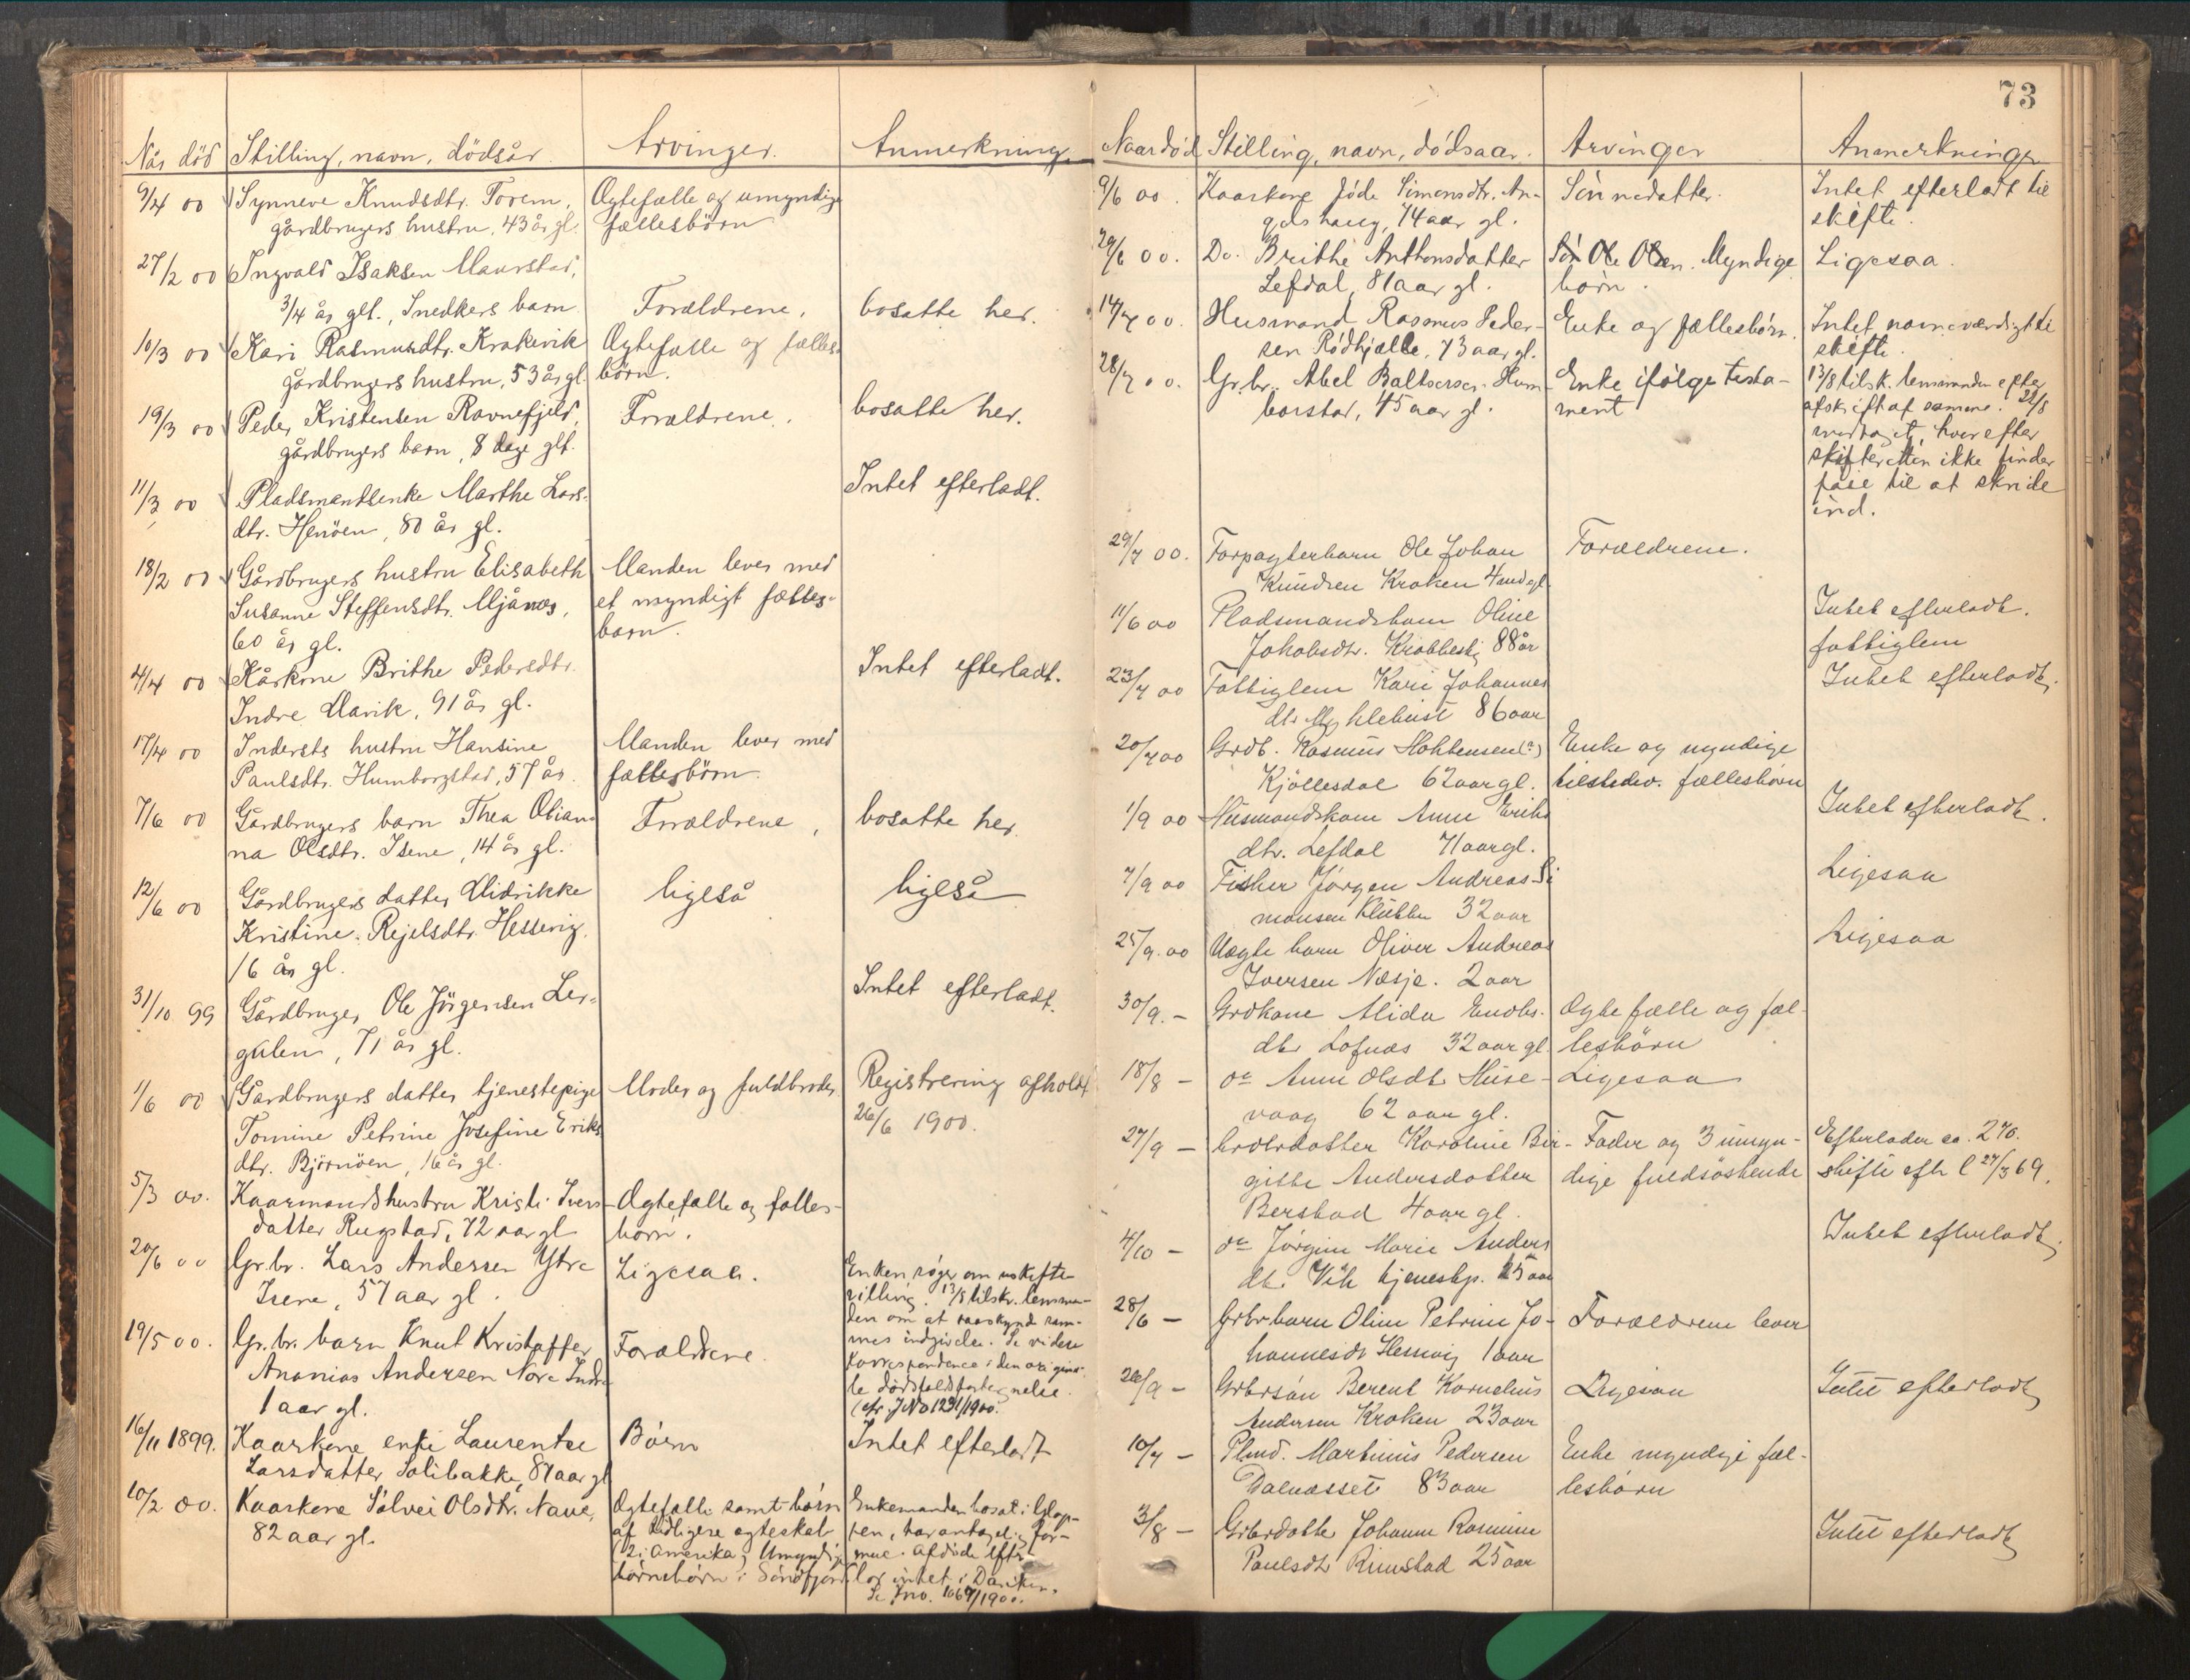 Når död Stilling, navn, dödsår. Arvinger. Anmerkning.
9/4 00 Synneve Knudsdtr. Torem, Ægtefælle og umyndige
gårdbrugers hustru, 43 år gl. fællesbörn
27/2 00 Ingvald Isaksen Maurstad,
3/4 år glt., Snedkers barn Forældrene, bosatte her.
10/3 00 Kari Rasmusdtr. Krakevik Ægtefælle og fælles-
gårdbrugers hustru, 53 år gl. börn.
19/3 00 Peder Kristensen Ravnefjeld, Forældrene, bosatte her.
gårdbrugers barn, 8 dage glt.
11/3 00 Pladsmandsenke Marthe Lars- Intet efterladt.
dtr. Henöen, 80 år gl.
18/2 00 Gårdbrugers hustru Elisabeth Manden lever med
Susanne Steffensdtr. Mjånæs, et myndigt fælles-
60 år gl. barn.
4/4 00 Kårkone Brithe Pedersdtr. Intet efterladt.
Indre Mavik, 91 år gl.
17/4 00 Indersts hustru Hansine Manden lever med
Paulsdtr. Humborgstad, 57 år. fællesbörn.
7/6 00 Gårdbrugers barn Thea Olian- Forældrene, bosatte her.
na Olsdtr. Isene, 14 år gl.
12/6 00 Gårdbrugers datter Didrikke ligeså ligeså
Kristine Rejelsdtr. Hessevig,
16 år gl.
31/10 99 Gårdbruger Ole Jörgensen Ler- Intet efterladt.
gulen, 71 år gl.
1/6 00 Gårdbrugers datter tjenestepige Moder og fuldbroder Registrering afholdt
Tomine Petrine Josefine Eriks- 26/6 1900.
dtr. Björnöen, 16 år gl.
5/3 00. Kaarmandshustru Kristi Ivers- Ægtefælle og fælles-
datter Rugstad, 72 aar gl børn.
20/6 00 Gr.br. Lars Andersen Ytre Ligesaa. Enken søger om uskifte-
Isene, 57 aar gl. villing. 13/8 tilskr. lensman-
den om at
mes indgivelse. Se videre
19/5 00. Gr.br. barn Knut Kristoffer Forældrene. korrespondence i den origina-
Ananias Andersen Nore Indre le dødsfaldsfortegnelse.
1 aar gl. (cfr. JNo 1231/1900.
16/11 1899. Kaarkone enke Laurentse Børn Intet efterladt
Larsdatter Solibakke, 87 aar gl
10/2 00. Kaarkone Sølvei Olsdtr. Nave, Ægtefælle samt børn Enkemanden bosat i Glop-
82 aar gl. af tidligere egteskab pen, har antagelig for-
(2 i Amerika) Umyndige mue. Afdøde efter-
børnebørn i Søndfjord lod intet i Daviken.
Se Jno. 1069/1900.
73
Naar död Stilling, navn, dödsaar. Arvinger Anmerkninger
9/6 00. Kaarkone Jøde Simonsdtr. An- Sönnedatter. Intet efterladt til
gelshaug, 74 aar gl. skifte.
29/6 00. Do. Brithe Anthonsdatter Sön Ole Olsen. Myndige Ligesaa.
Lefdal, 81 aar gl. börn.
14/7 00. Husmand Rasmus Peder- Enke og fællesbørn. Intet navneværdigt til
sen Rødhjælle, 73 aar gl. skifte.
28/7 00. Gr.br. Abel Baltserser. Hum- Enke ifølge testa- 13/8 tilsk. lensmanden efter
borstad, 45 aar gl. ment afskrift af samme. 22/8
modtaget, hvorefter
skifteretten ikke finder
føie til at skride
ind.
29/7 00. Forpagterbarn Ole Johan Forældrene.
Knudsen Kroken 4 md gl
11/6 00 Pladsmandskone Oline Intet efterladt.
Jakobsdtr. Krabbestig 88 år fattiglem
23/7 00 Fattiglem Kari Johannes Intet efterladt.
dtr Myklebust 86 aar
20/7 00 Grdb. Rasmus (?) Enke og myndige
Kjöllesdal 62 aar gl. tilstedev. fællesbörn
1/9 00 Husmandskone Anne Eriks Intet efterladt.
dtr. Lefdal 71 aar gl.
7/9 00 Fisker Jørgen Andreas Si Ligesaa
monsen Klubben 32 aar
25/9.00 Uægte barn Oliver Andreas Ligesaa
Iversen Nesje. 2 aar
30/9.- Grdkone Alida Enoks. Ægtefælle og fæl-
dtr Lofnæs 32 aar gl. lesbörn
18/8 - do Anne Olsdtr Huse- Ligesaa
vaag 62 aar gl.
27/9 - Grdbrdatter Karoline Bir- Fader og 3 umyn- Efterlader ca. 270.
gitte Andersdatter dige fuldsöskende skifte efter l 27/3 69.
Berstad 4 aar gl.
4/10 - do Jørgine Marie Anders Intet efterladt.
dtr. Vik tjenestp. 25 aar
28/6 - Grbrbarn Oline Petrine Jo- Forældrene lever
hannesdtr Hessevig 1 aar
26/9 - Grbrsøn Berent Kornelius Ligesaa Intet efterladt
Andersen Kroken 23 aar
10/7 - Plmd. Martinus Pedersen Enke myndige fæl-
Dalnæsset 83 aar lesbörn
3/8 - Grbrdatter Johanne Rasmine Intet efterladt
Paulsdtr Rimstad 25 aar